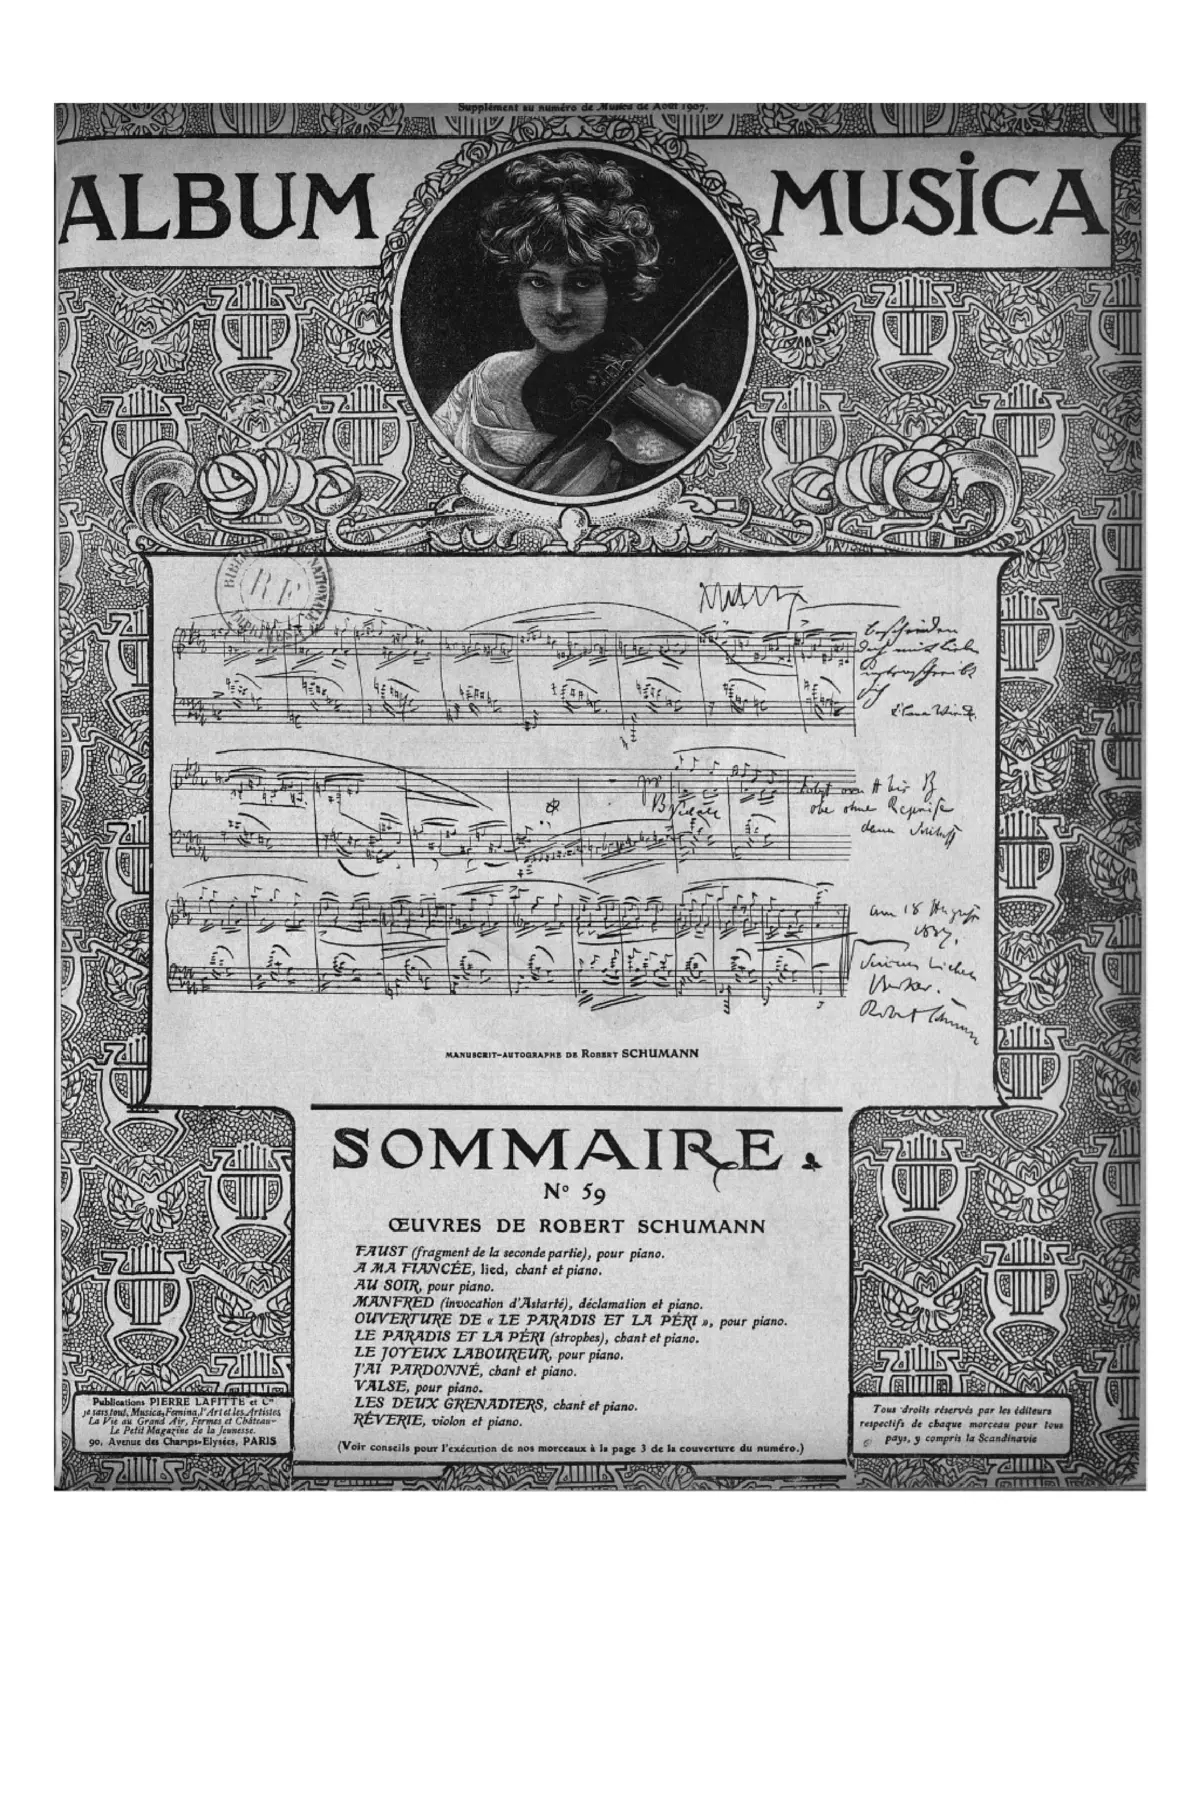 Supplément au numéro de Musica de Août 1907.
ALBUM MUSICA
R F
am 18 August
1837.
Robert Schumann
MANUSCRIT-AUTOGRAPHE DE ROBERT SCHUMANN
SOMMAIRE.
N° 59
ŒUVRES DE ROBERT SCHUMANN
FAUST (fragment de la seconde partie), pour piano.
A MA FIANCÉE, lied, chant et piano.
AU SOIR, pour piano.
MANFRED (invocation d'Astarté), déclamation et piano.
OUVERTURE DE « LE PARADIS ET LA PÉRI », pour piano.
LE PARADIS ET LA PÉRI (strophes), chant et piano.
LE JOYEUX LABOUREUR, pour piano.
J'AI PARDONNÉ, chant et piano.
VALSE, pour piano.
LES DEUX GRENADIERS, chant et piano.
RÊVERIE, violon et piano.
(Voir conseils pour l'exécution de nos morceaux à la page 3 de la couverture du numéro.)
Publications PIERRE LAFITTE et Cie
je sais tout, Musica, Femina, l'Art et les Artistes
La Vie au Grand Air, Fermes et Château-
Le Petit Magazine de la Jeunesse.
90, Avenue des Champs-Elysées, PARIS
Tous droits réservés par les éditeurs
respectifs de chaque morceau pour tous
pays, y compris la Scandinavie